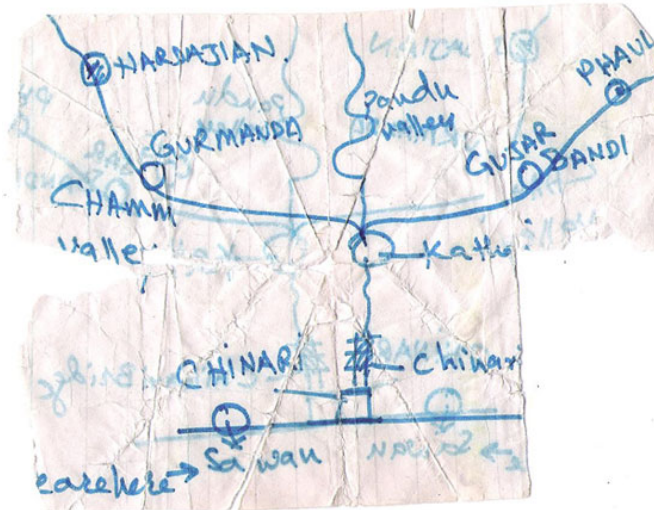 HARDAJIAN.
PHAUL
Pandu
valley
GURMANDA
GUJAR
BANDI
CHAMM
valley
Kathai
CHINARI
Chinari
Sawan
earehere →